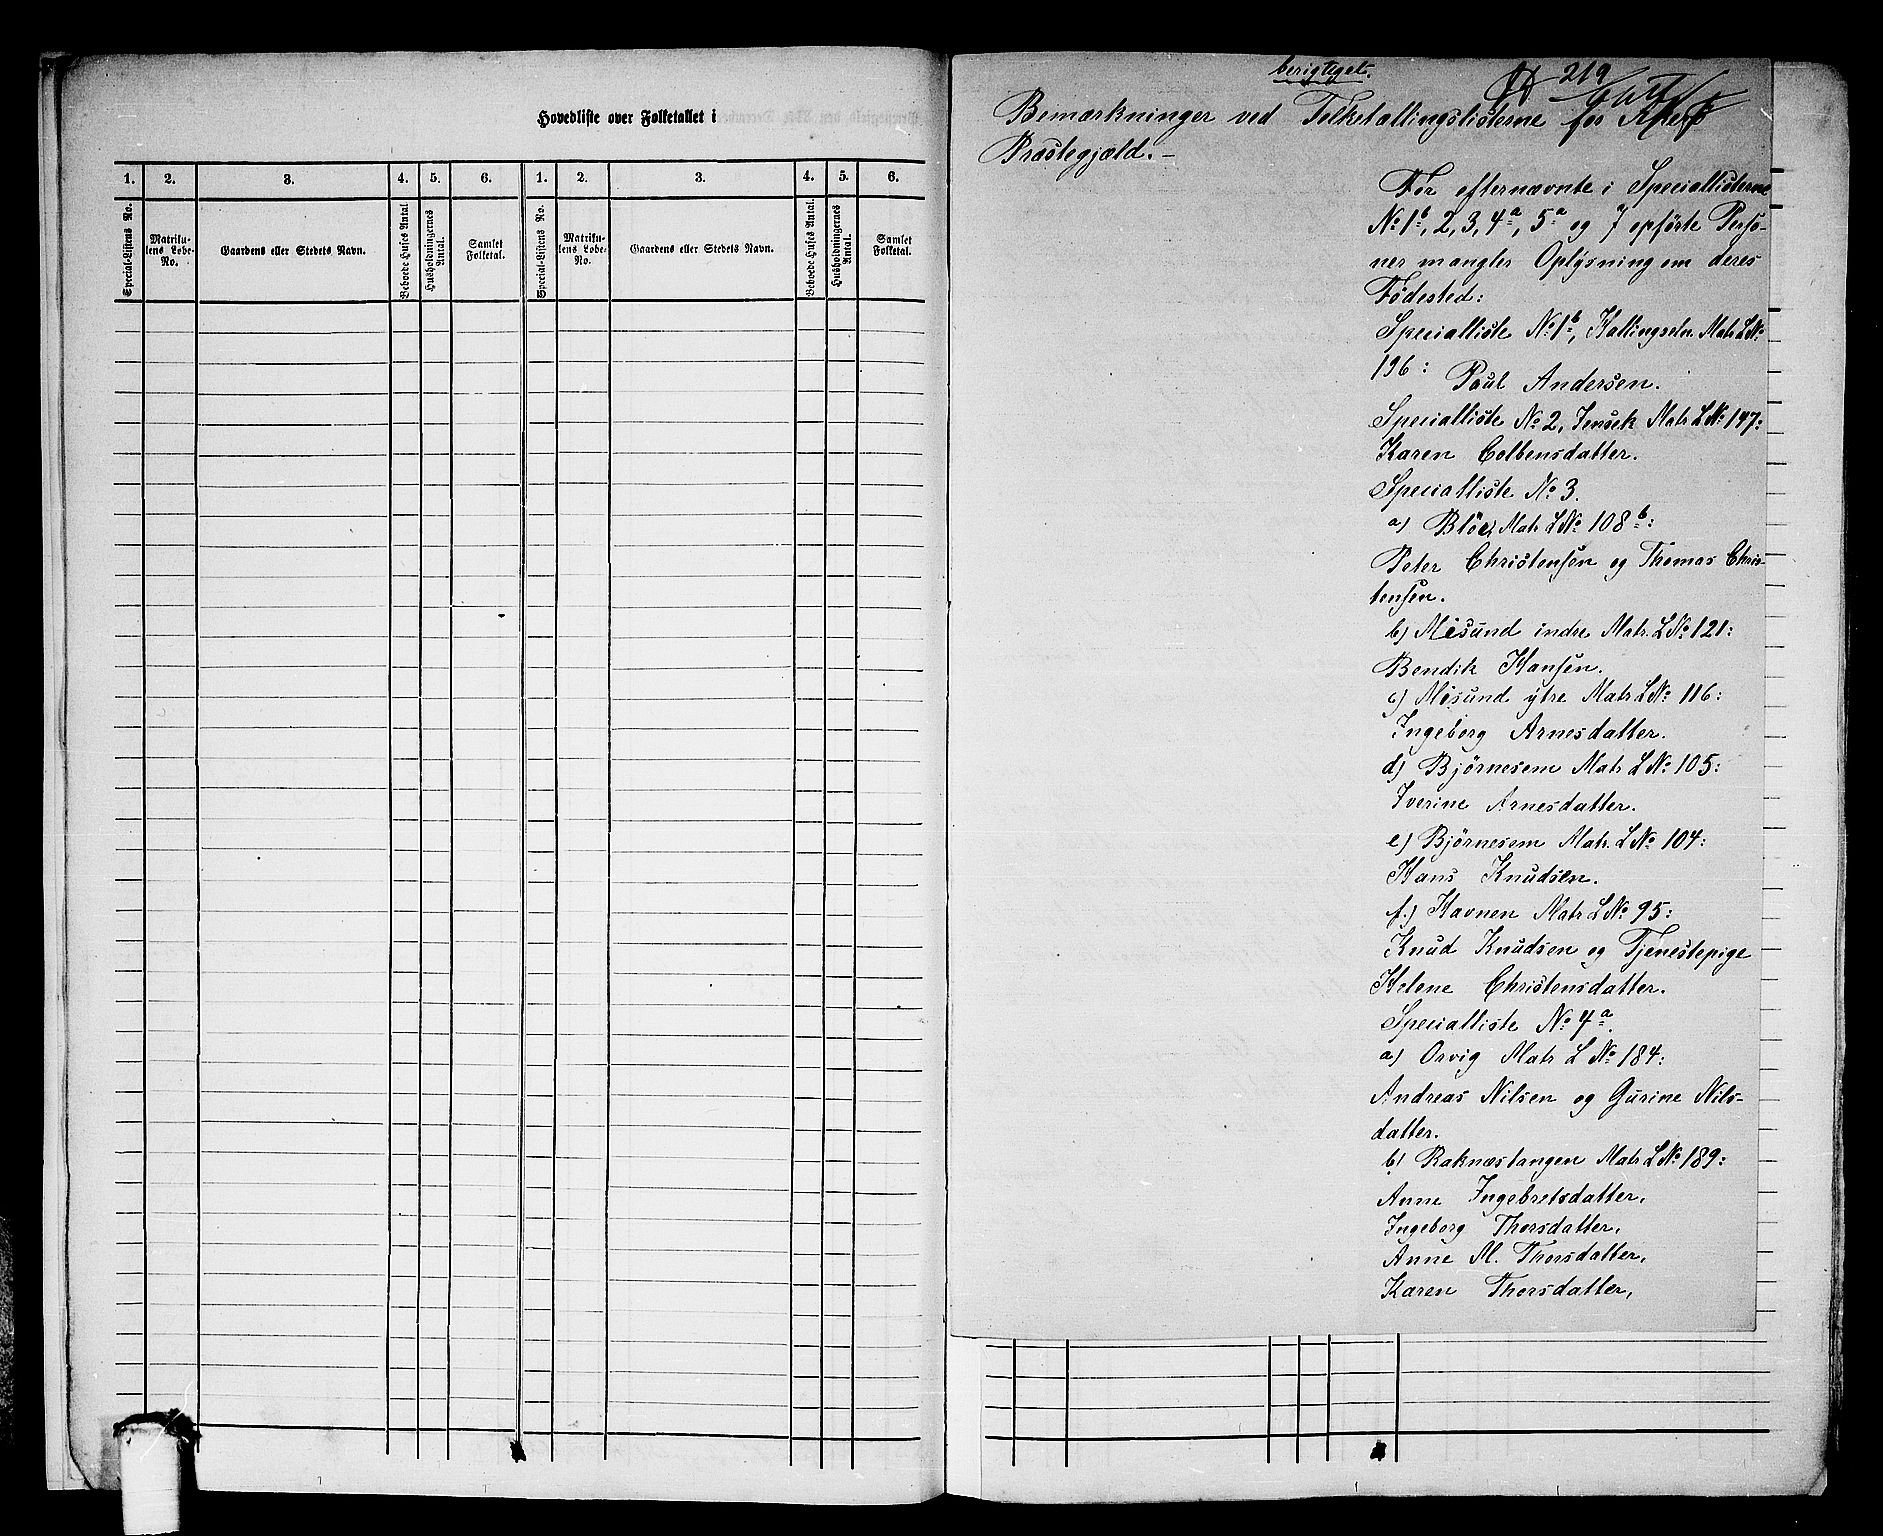 Hovedliste over Folketallet i
1. 2. 3. 4. 5. 6. 1. 2. 3. 4. 5. 6.
Special-Listens No.
Matrikulens Løbe-No.
Gaardens eller Stedets Navn.
Beboede Huses Antal
Husholdningernes Antal.
Samlet Folketal.
Special-Listens No.
Matrikulens Løbe-No.
Gaardens eller Stedets Navn.
Beboede Huses Antal.
Husholdningernes Antal.
Samlet Folketal.
berigtiget.
219
Bemærkninger ved Folketallingslisterne for
Præstegjæld. –
For efternævnte i Speciallisterne
No 1b, 2, 3, 4a, 5a og 7 opførte Perso-
ner mangler Oplysning om deres
Fødested:
Specialliste No 1b, Hallingseln. Matr L No
196:
Paul Andersen.
Specialliste No 2, Jensek Matr L No 147:
Karen Colbensdatter.
Specialliste No 3.
a) Matr L No 108b:
Peter Christensen og Thomas Chris-
tensen.
b) Mesund indre Matr. L No 121:
Bendik Hansen.
c) Mesund ytre Matr L No 116:
Ingeborg Arnesdatter.
d) Bjørnesem Matr L No 105:
Iverine Arnesdatter.
e) Bjørnesem Matr. L No 104:
Hans Knudsen.
f.) Havnen Matr L No 95:
Knud Knudsen og Tjenestepige
Helene Christensdatter.
Specialliste No 4a.
a) Orvig Matr L No 184:
Andreas Nilsen og Gurine Nils-
datter.
b) Raknæstangen Matr L No 189:
Anne Ingebretsdatter,
Ingeborg Thorsdatter,
Anne M. Thorsdatter,
Karen Thorsdatter,